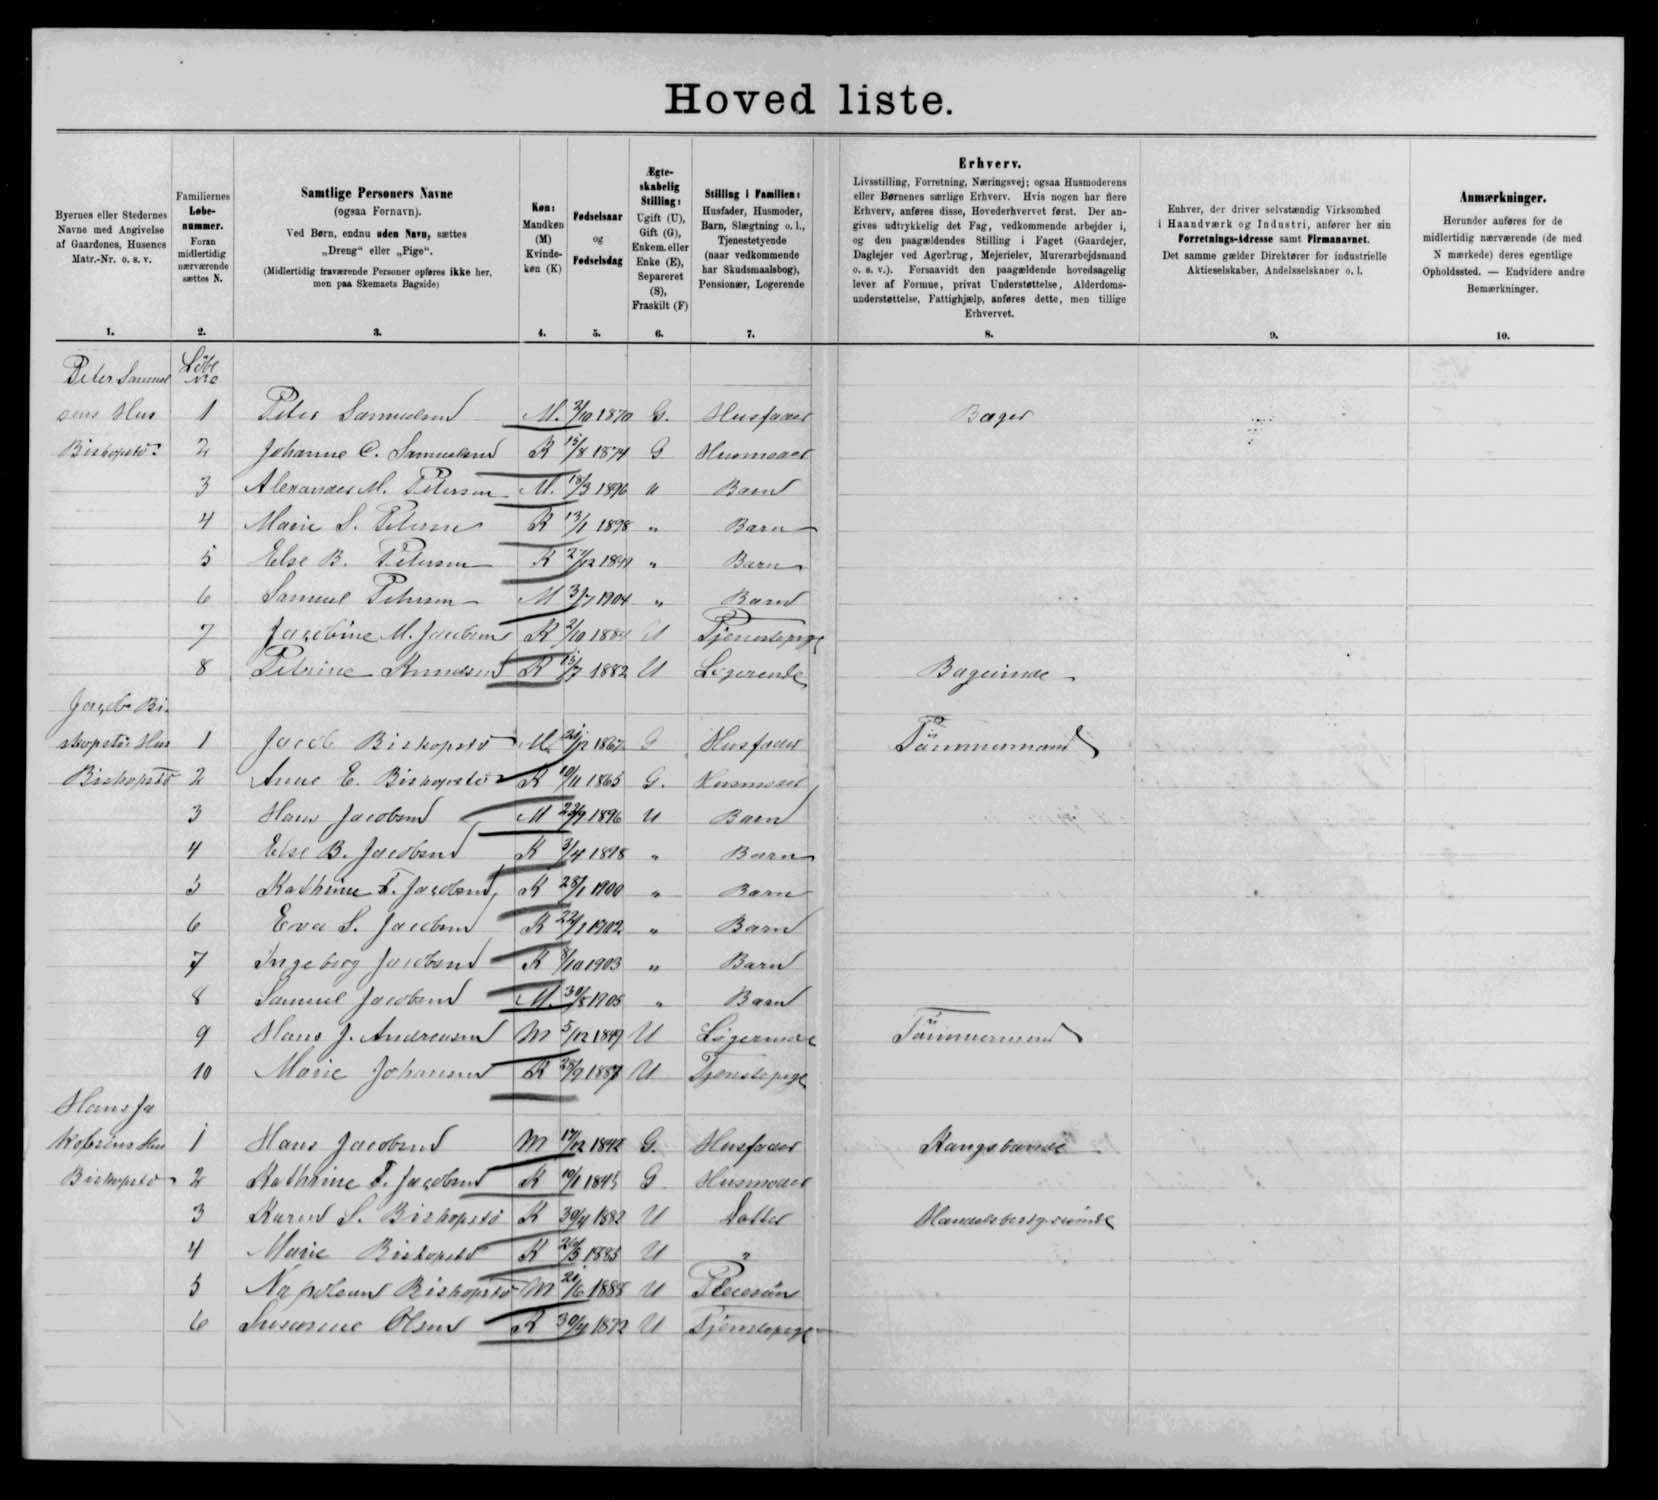 Hoved liste.
Byernes eller Stedernes Navne med Angivelse af Gaardenes, Husenes Matr.-Nr. o. s. v.
Familiernes Løbenummer. Foran midlertidig nærværende sættes N.
Samtlige Personers Navne
(ogsaa Fornavn).
Ved Børn, endnu uden Navn, sættes „Dreng“ eller „Pige“.
(Midlertidig fraværende Personer opføres ikke her, men paa Skemaets Bagside)
Køn: Mandkøn (M) Kvindekøn (K)
Fødselsaar og Fødselsdag
Ægteskabelig Stilling: Ugift (U), Gift (G), Enkem. eller Enke (E), Separeret (S), Fraskilt (F)
Stilling i Familien: Husfader, Husmoder, Barn, Slægtning o. l., Tjenestetyende (naar vedkommende har Skudsmaalsbog), Pensionær, Logerende
Erhverv.
Livsstilling, Forretning, Næringsvej; ogsaa Husmoderens
eller Børnenes særlige Erhverv. Hvis nogen har flere
Erhverv, anføres disse, Hovederhvervet først. Der an-
gives udtrykkelig det Fag, vedkommende arbejder i,
og den paagældendes Stilling i Faget (Gaardejer,
Daglejer ved Agerbrug, Mejerielev, Murerarbejdsmand
o. s. v.). Forsaavidt den paagældende hovedsagelig
lever af Formue, privat Understøttelse, Alderdoms-
understøttelse, Fattighjælp, anføres dette, men tillige
Erhvervet.
Enhver, der driver selvstændig Virksomhed
i Haandværk og Industri, anfører her sin
Forretnings-Adresse samt Firmanavnet.
Det samme gælder Direktører for industrielle
Aktieselskaber, Andelsselskaber o. l.
Anmærkninger.
Herunder anføres for de
midlertidig nærværende (de med
N mærkede) deres egentlige
Opholdssted. — Endvidere andre
Bemærkninger.
1. 2. 3. 4. 5. 6. 7. 8. 9. 10.
Peter Samuel Løbe No
sens Hus 1 Peter Samuelsen M. 2/10 1870 G. Husfader Bager
Biskopstø 2 Johanne C. Samuelsen K 15/8 1874 G Husmoder
3 Alexander M. Petersen M. 18/3 1896 " Barn
4 Marie S. Petersen K 13/1 1898 " Barn
5 Else B. Petersen K 27/12 1899 " Barn
6 Samuel Petersen M 3/7 1904 " Barn
7 Jacobine M. Jacobsen K 2/10 1884 U Tjenestepige
8 Petrine Knudsen K 15/7 1882 U Logerende Bagerinde
Jacob Bi-
skopstøs Hus 1 Jacob Biskopstø M. 1862 G Husfader Tömmermand
Biskopstø 2 Anne E. Biskopstø K 10/11 1865 G. Husmoder
3 Hans Jacobsen M 22/9 1896 U Barn
4 Else B. Jacobsen K 3/4 1898 " Barn
5 Kathrine F. Jacobsen K 28/1 1900 " Barn
6 Eva S. Jacobsen K 22/1 1902 " Barn
7 Ingeborg Jacobsen K 8/10 1903 " Barn
8 Samuel Jacobsen M. 30/8 1905 " Barn
9 Hans J. Andreasen M 5/12 1849 U Logerende Tömmermand
10 Marie Johansen K 28/9 1887 U Tjenestepige
Hans Ja
kobsens Hus 1 Hans Jacobsen M 17/12 1842 G. Husfader Kongsbonde
Biskopstø 2 Kathrine F. Jacobsen K 10/1 1845 G Husmoder
3 Karen S. Biskopstø K 30/4 1882 U Datter Handelsbestyrerinde
4 Marie Biskopstø K 26/3 1885 U "
5 Napoleun Biskopstø M 20/6 1888 U Plecesön
6 Susanne Olsen K 30/4 1872 U Tjenestepige